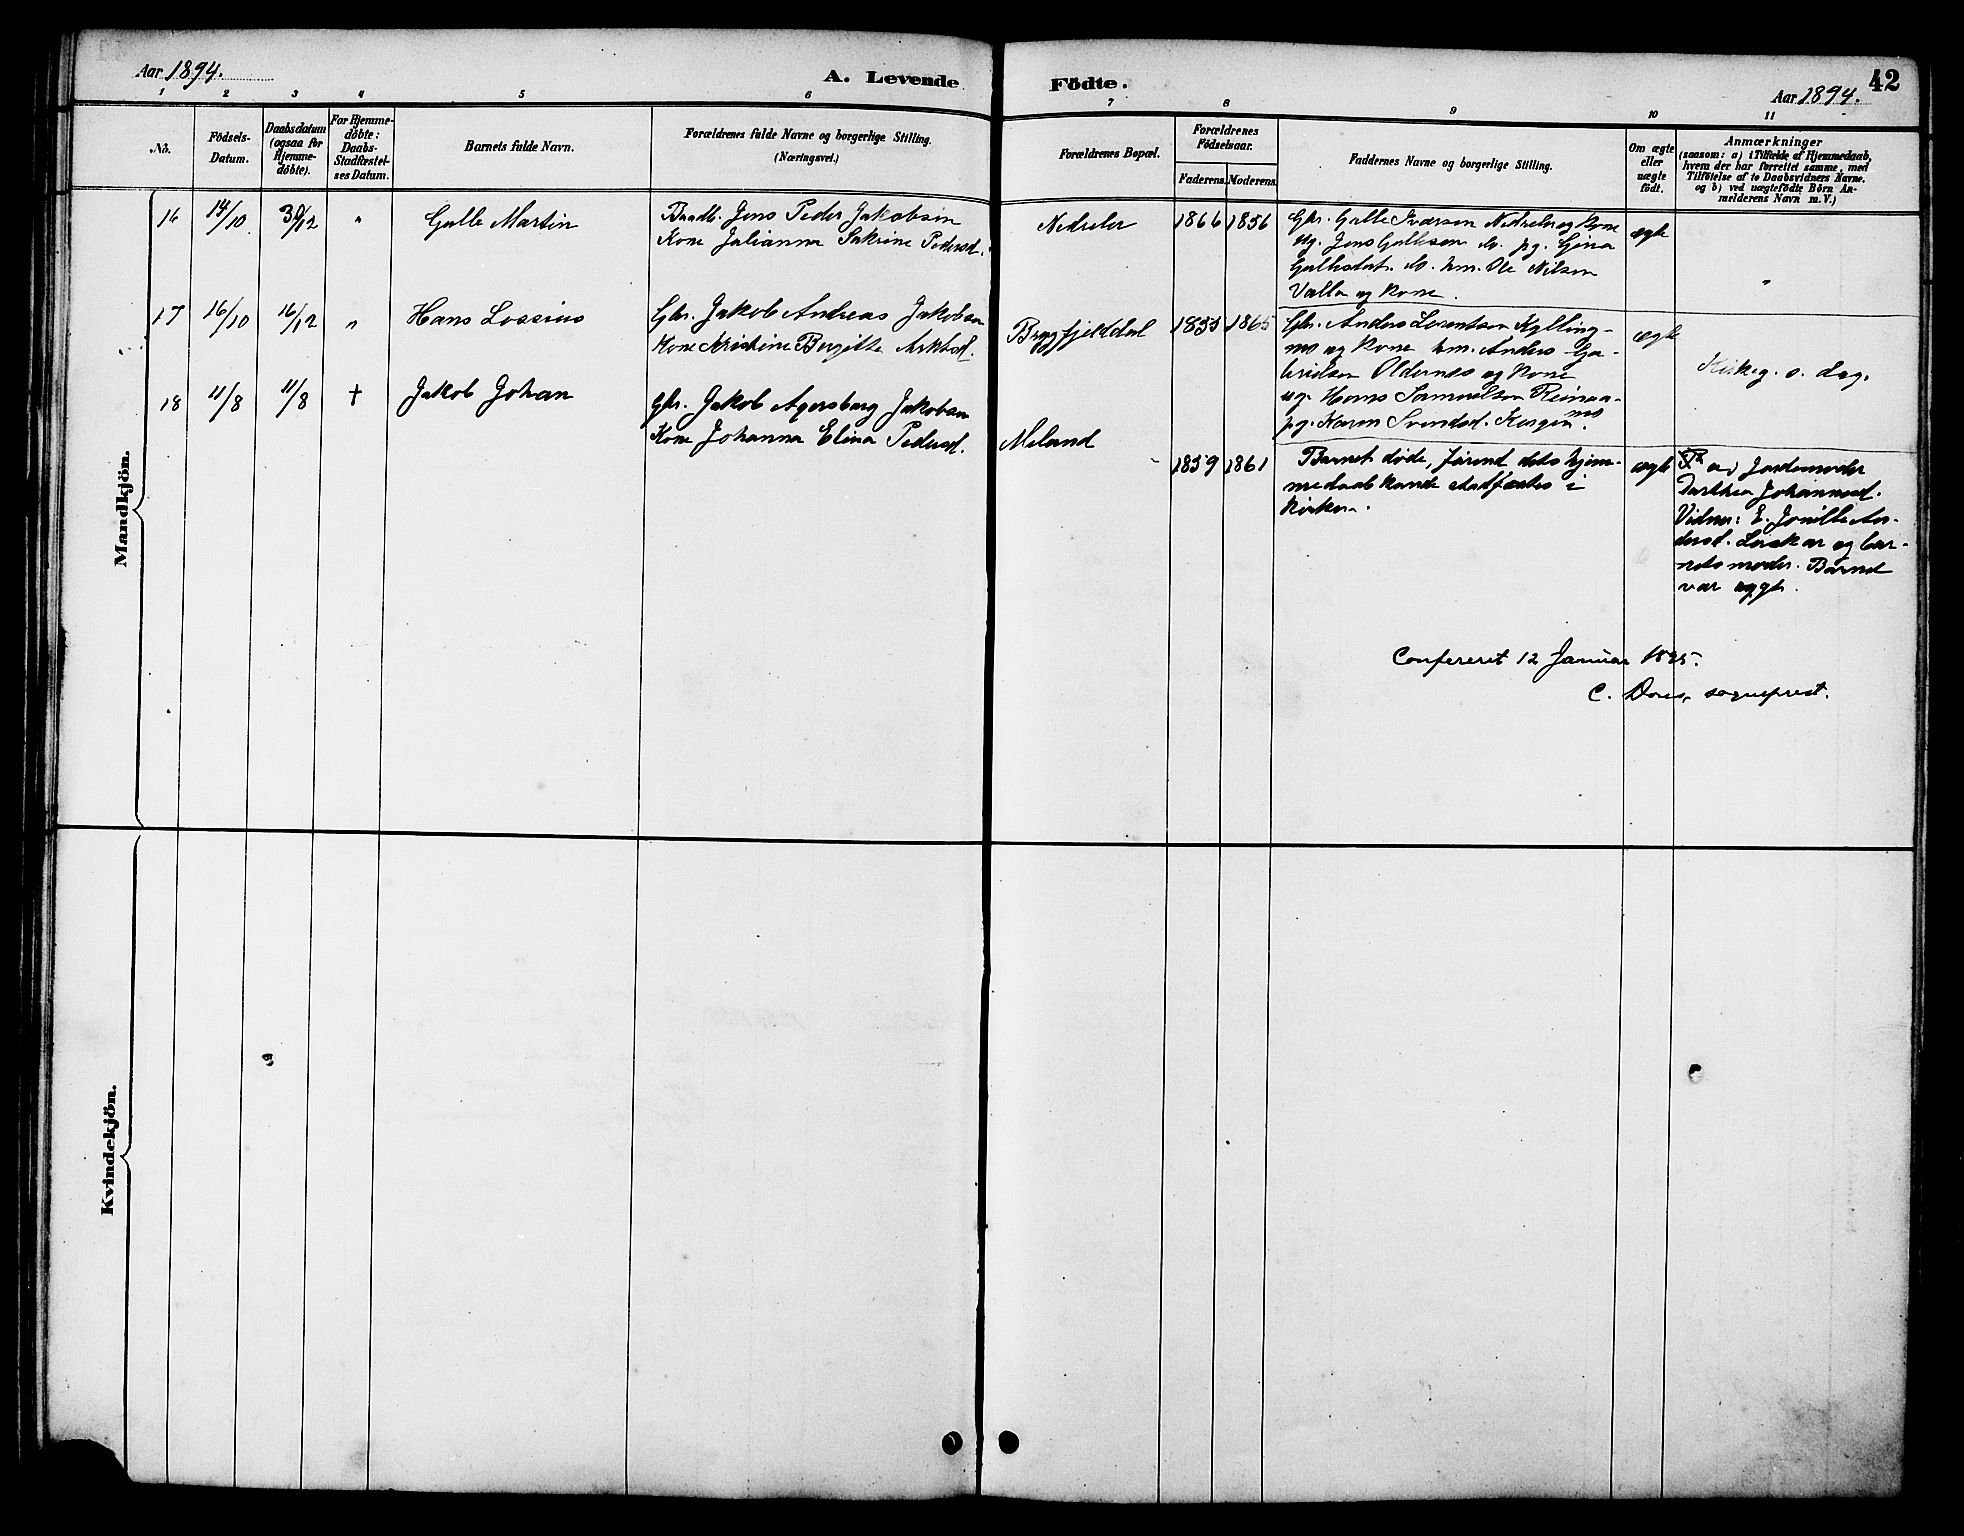 Aar 1894.
A. Levende Födte.
42
Aar 1894.
1 2 3 4 5 6 7 8 9 10 11
No.
Födsels-
Datum.
Daabsdatum
(ogsaa for
Hjemme-
døbte).
For Hjemme-
døbte:
Daabs-
Stadfæstel-
ses Datum.
Barnets fulde Navn.
Forældrenes fulde Navne og borgerlige Stilling.
(Næringsvei.)
Forældrenes Bopæl.
Forældrenes
Födselsaar.
Faderens. Moderens.
Faddernes Navne og borgerlige Stilling.
Om ægte
eller
uægte
födt.
Anmærkninger
(saasom: a) i Tilfælde af Hjemmedaab,
hvem der har forrettet samme, med
Tilföielse af to Daabsvidners Navne.
og b) ved uægtefödte Börn An-
melderens Navn m. V.)
Mandkjön.
16 14/10 30/12 " Galle Martin
Jens Peder Jakobsen
Kone Julianna Sakrine Pedersd.
Nedreler
1866 1856
Gbr. Galle Iversen Nedreler og Kone
ug. Jens Gallesen
Ole Nilsen
Valla og Kone.
ægte
"
17 16/10 16/12 " Hans Lossius
Gbr. Jakob Andreas Jakobsen
Kone Kristine Bergitte
Bryggfjelddal
1855 1865
Gbr. Anders Lorentsen Kylling-
mo og Kone hm. Anders Ga-
brielsen Oldernes og Kone
ug. Hans Samuelsen
pg. Karen Svendsd. Korgen.
ægte
Kirkeg. s. dag.
18 11/8 11/8 † Jakob Johan
Gbr. Jakob Agersborg Jakobsen
Kone Johanna Elina Pedersd.
Meland
1859 1861
Barnet døde, förend dets hjem-
medaab kunde stadfæstes i
Kirken.
ægte
av Jordemoder
Dorthea Johannesd.
Vidner: E.
Leskar og bar-
nets moder. Barnet
var
Confereret 12 Januar 1895.
C. sogneprest.
Kvindekjön.